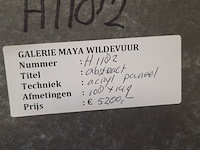 H1182
GALERIE MAYA WILDEVUUR
Nummer : H1182
Titel : abstract
Techniek : acryl paneel
Afmetingen : 100 x 149
Prijs : € 5200,-